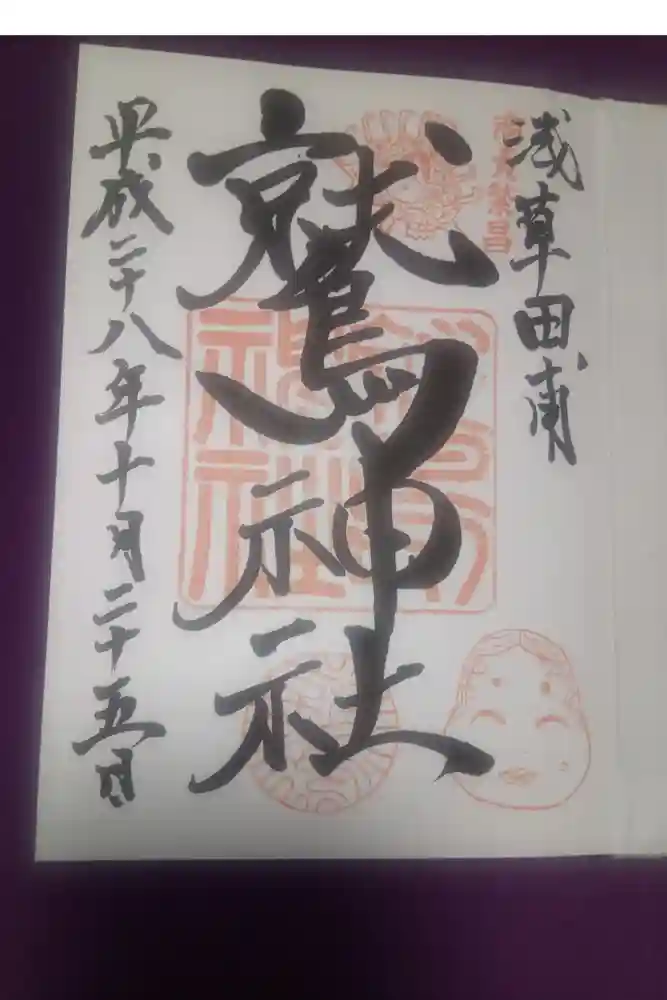 浅草田甫
商売繁昌
鷲神社
平成二十八年十月二十五日